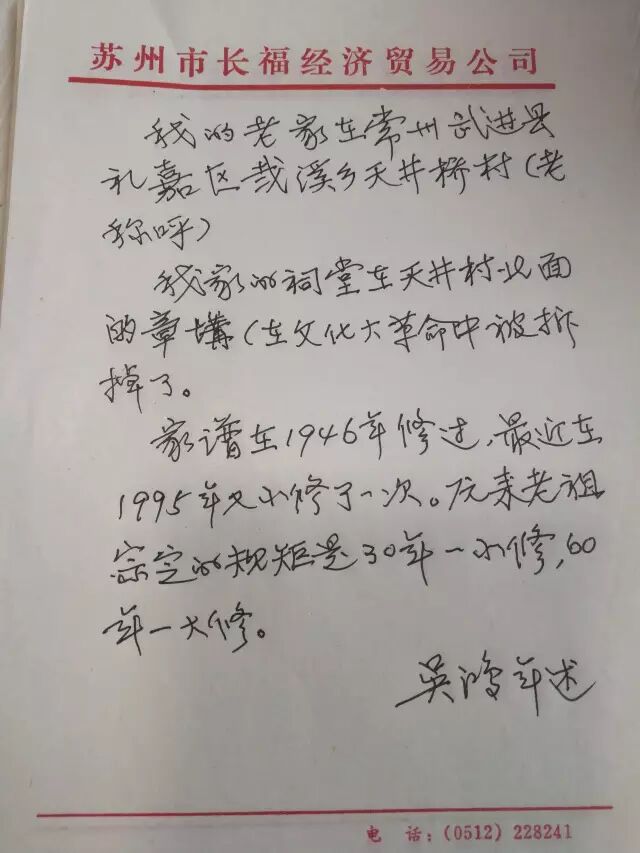 苏州市长福经济贸易公司
我的老家在常州武进县
礼嘉区戋溪乡天井桥村(老
称呼)
我家的祠堂在天井村北面
的章墡(在文化大革命中被拆
掉了。
家谱在1946年修过,最近在
1995年又小修了一次。原来老祖
宗定的规矩是30年一小修,60
年一大修。
吴鸿年述
电 话:(0512) 228241